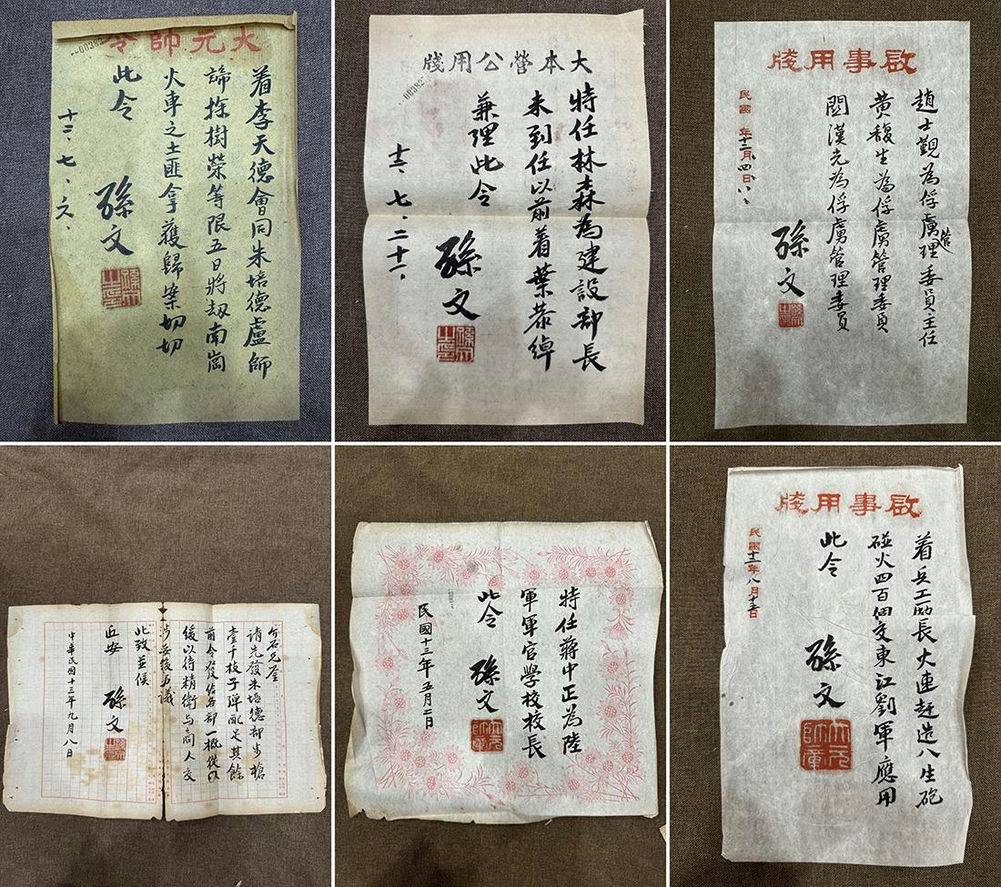 大元帥令
着李天德會同朱培德盧師
諦孫樹榮等限五日將刼南崗
火車之土匪拿獲歸案切切
此令
孫文
十三、七、六、
大本營公用牋
特任林森為建設部長
未到任以前着葉恭綽
兼理此令
孫文
十二、七、二十一、
啟事用牋
趙士覲為俘虜管理委員主任
黃馥生為俘虜管理委員
閻漢元為俘虜管理委員
孫文
民國十二年十二月四日
介石兄鑒
請先發朱培德部步槍
壹千枝子彈配足其餘
前令發給各部一概從
緩以待精衛與同人交
涉妥後再議
此致並候
近安
孫文
中華民國十三年九月八日
特任蔣中正為陸
軍軍官學校校長
此令
孫文
大元帥章
民國十三年五月二日
啟事用牋
着兵工廠長大連赶造八生砲
碰火四百個交東江劉軍應用
此令
孫文
大元帥章
民國十二年八月十五日